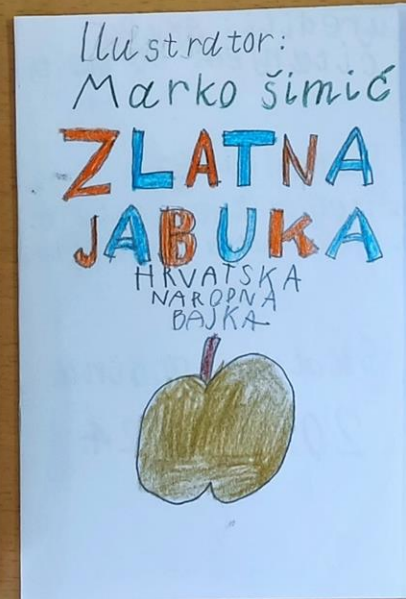 Ilustrator:
Marko Šimić
ZLATNA
JABUKA
HRVATSKA
NARODNA
BAJKA